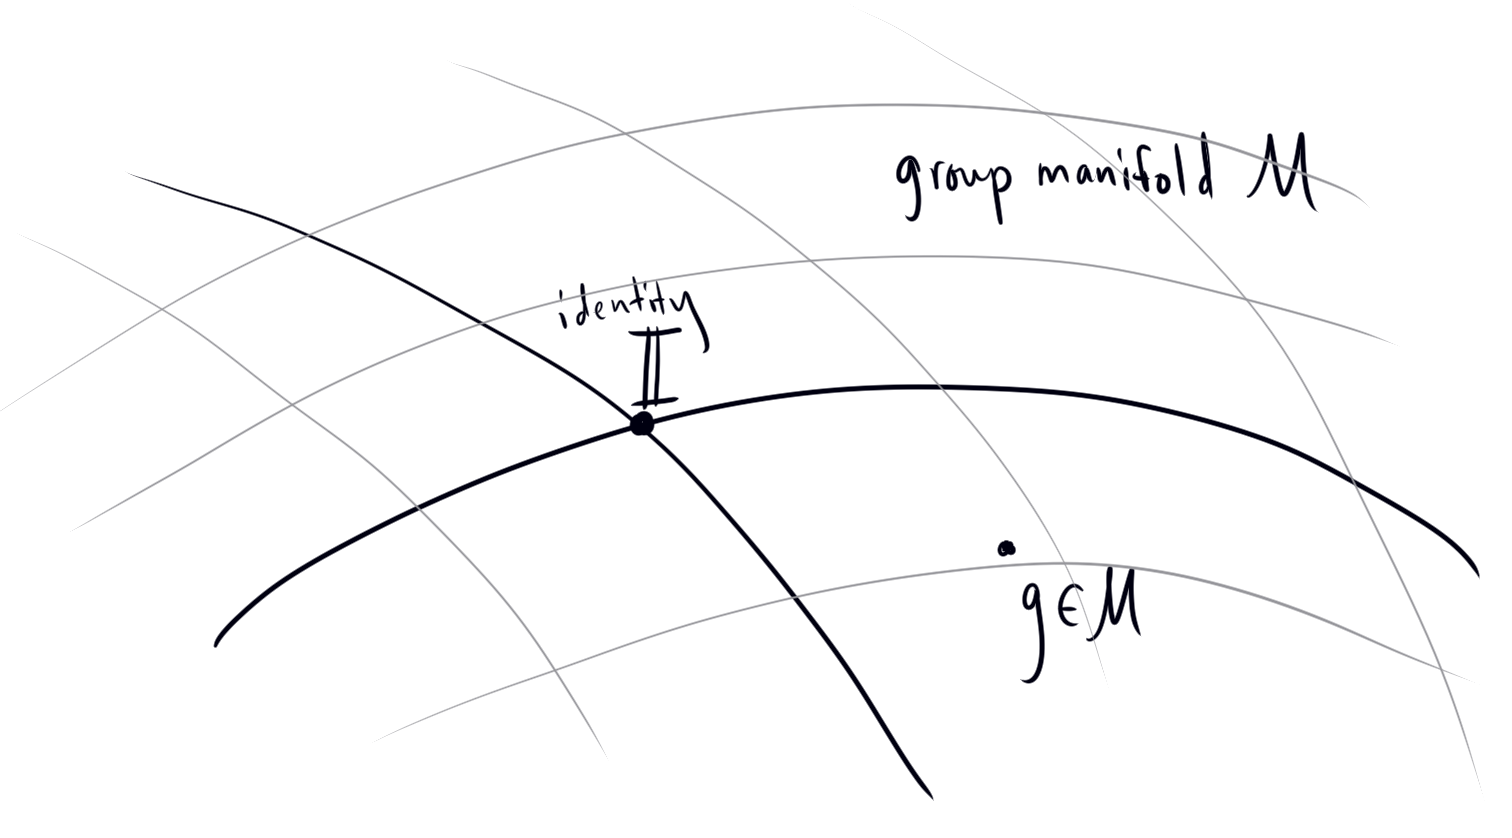 group manifold M
identity
𝟙
g ∈ M